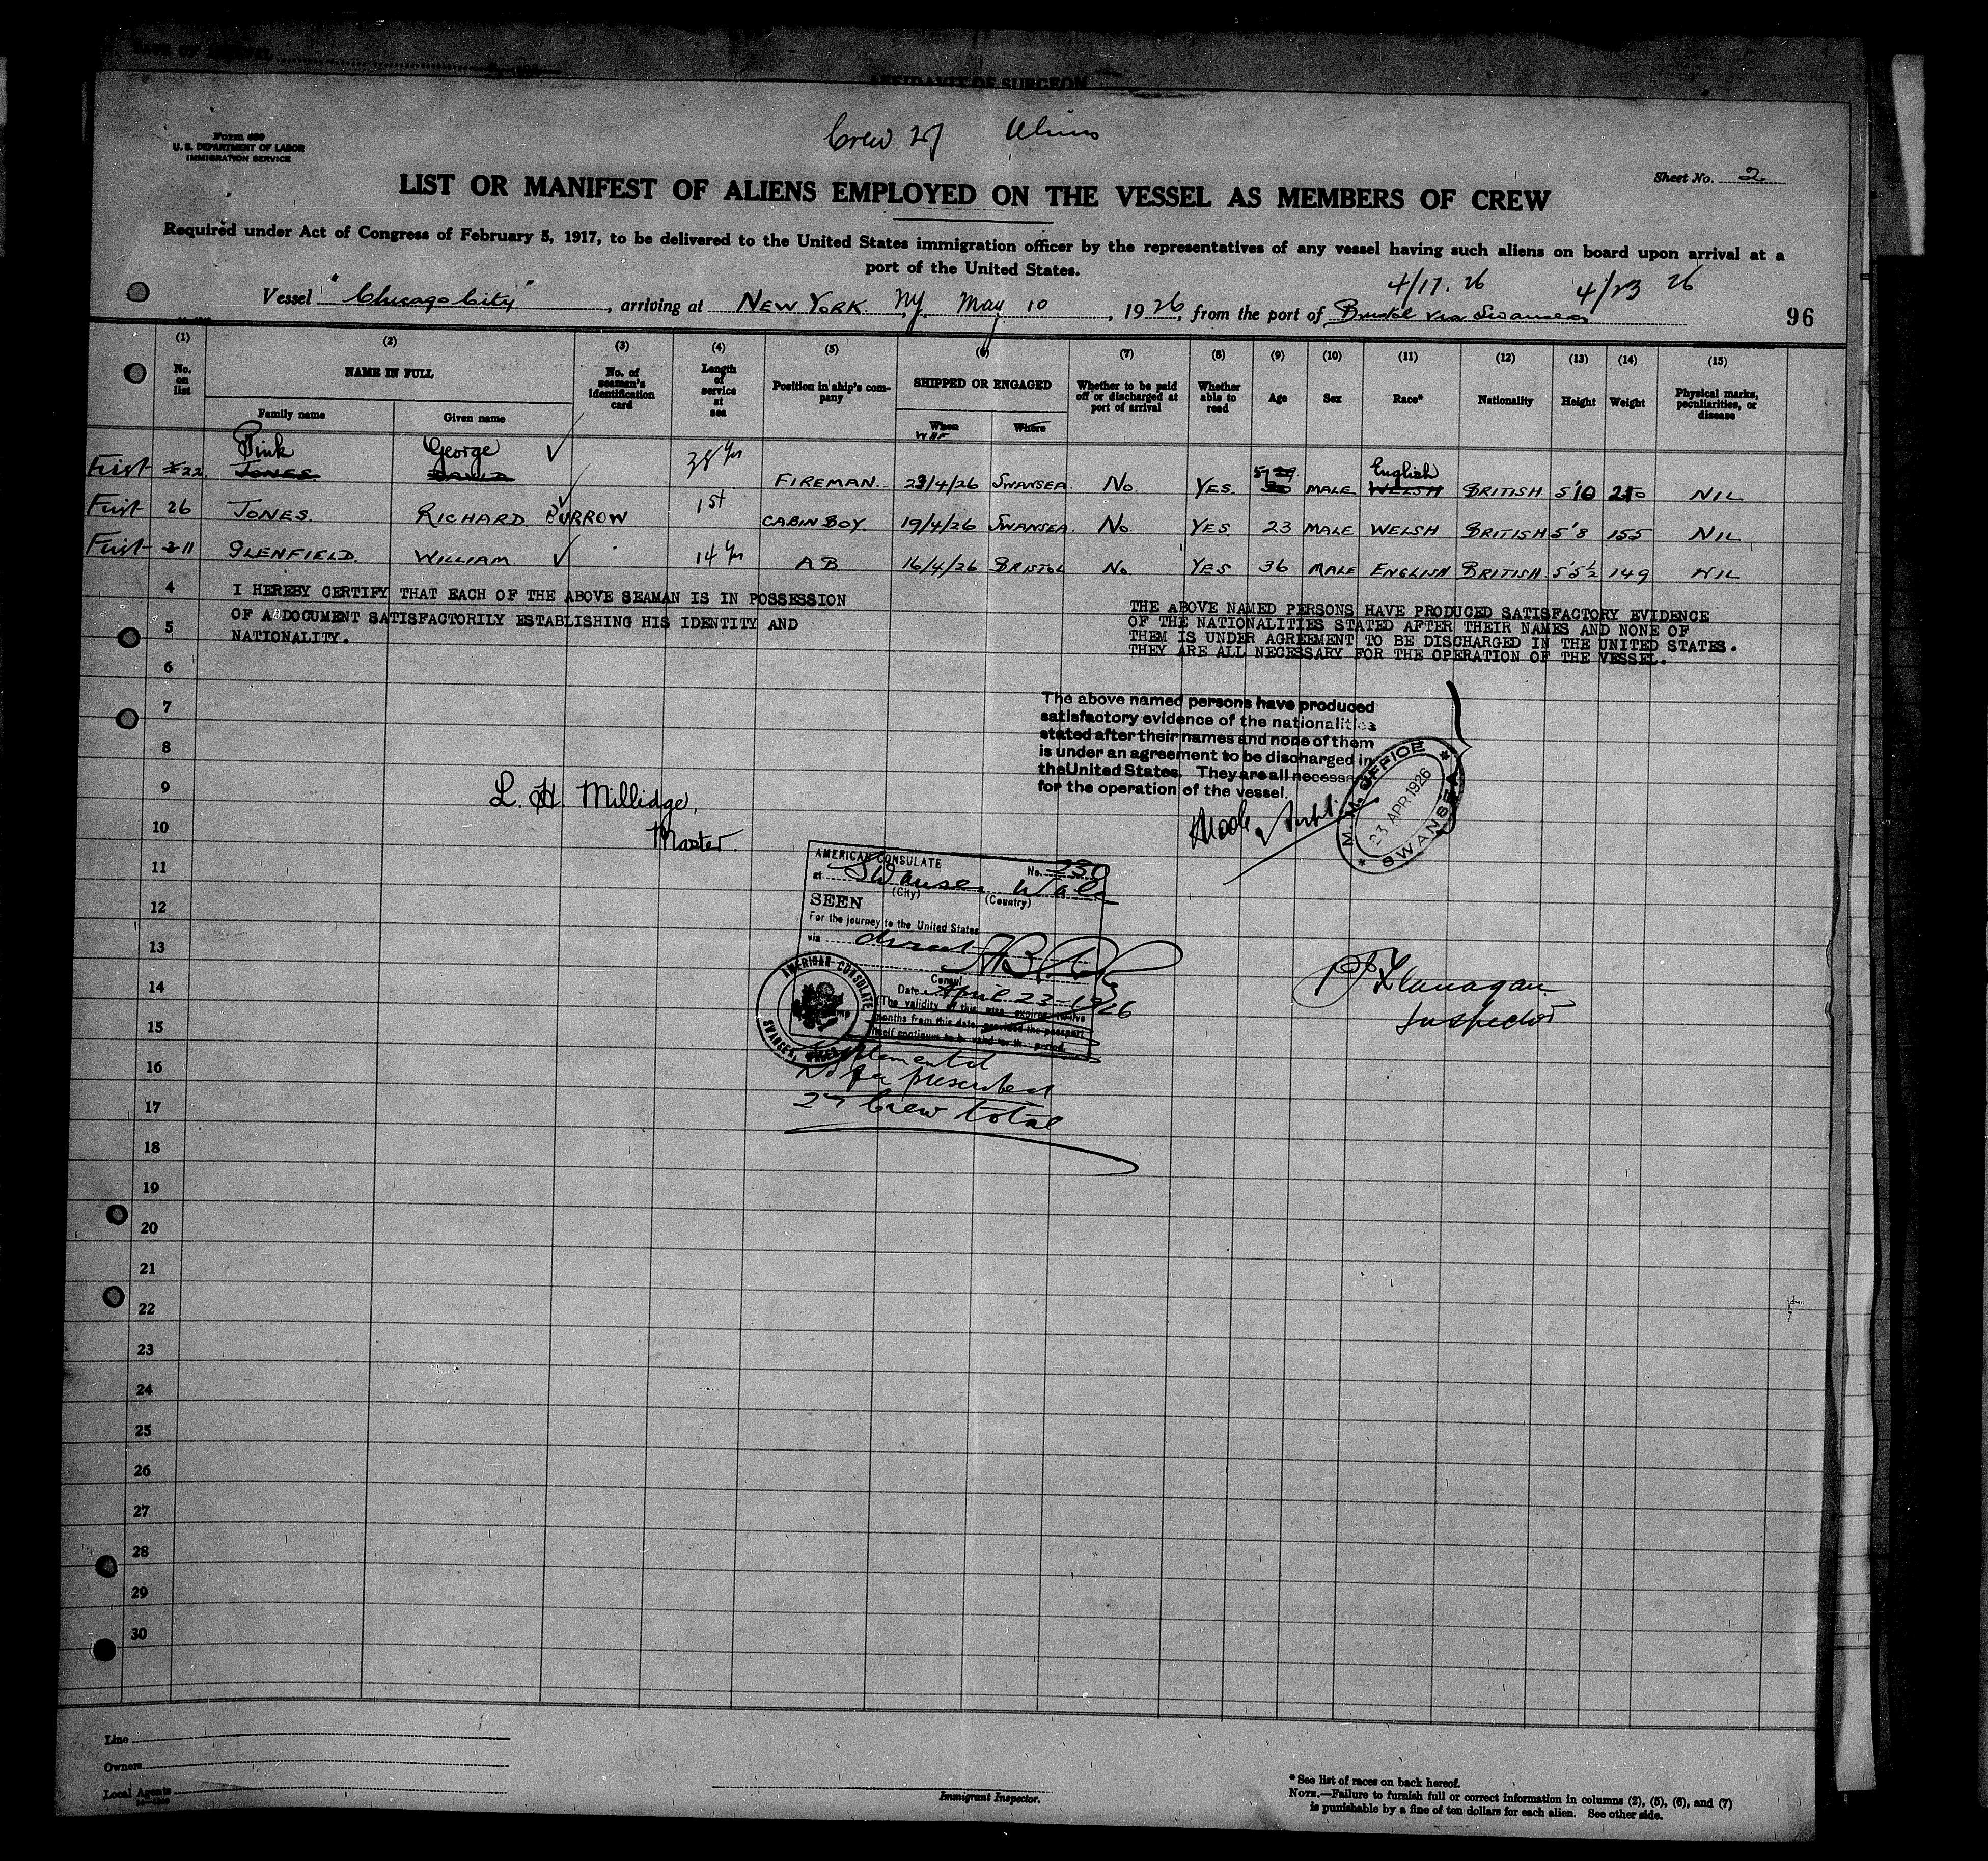 AFFIDAVIT OF SURGEON
Crew 27
Form 680
U. S. DEPARTMENT OF LABOR
IMMIGRATION SERVICE
Sheet No. 2
LIST OR MANIFEST OF ALIENS EMPLOYED ON THE VESSEL AS MEMBERS OF CREW
Required under Act of Congress of February 5, 1917, to be delivered to the United States immigration officer by the representatives of any vessel having such aliens on board upon arrival at a
port of the United States.
4/17. 26 4/23 26
Vessel "Chicago City", arriving at NEW YORK. N.Y. May 10, 1926, from the port of Bristol via Swansea
96
(1) (2) (3) (4) (5) (6) (7) (8) (9) (10) (11) (12) (13) (14) (15)
No. on list
NAME IN FULL
Family name Given name
No. of seaman's identification card
Length of service at sea
Position in ship's company
SHIPPED OR ENGAGED
When Where
Whether to be paid off or discharged at port of arrival
Whether able to read
Age
Sex
Race*
Nationality
Height
Weight
Physical marks, peculiarities, or disease
Pink George English
First 22 JONES 38 yrs FIREMAN 23/4/26 SWANSEA No YES. 57 MALE WELSH BRITISH 5'10 210 NIL
First 26 JONES. RICHARD BURROW 1st CABIN BOY. 19/4/26 SWANSEA. No YES 23 MALE WELSH BRITISH 5'8 155 NIL
First 11 GLENFIELD. WILLIAM 14 yrs A B. 16/4/26 BRISTOL No YES 36 MALE ENGLISH BRITISH 5'5½ 149 NIL
4 I HEREBY CERTIFY THAT EACH OF THE ABOVE SEAMAN IS IN POSSESSION
5 OF A DOCUMENT SATISFACTORILY ESTABLISHING HIS IDENTITY AND
NATIONALITY.
THE ABOVE NAMED PERSONS HAVE PRODUCED SATISFACTORY EVIDENCE
OF THE NATIONALITIES STATED AFTER THEIR NAMES AND NONE OF
THEM IS UNDER AGREEMENT TO BE DISCHARGED IN THE UNITED STATES.
THEY ARE ALL NECESSARY FOR THE OPERATION OF THE VESSEL.
6
7
The above named persons have produced
satisfactory evidence of the nationalities
stated after their names and none of them
is under an agreement to be discharged in
the United States. They are all necessary
for the operation of the vessel.
M. M. OFFICE
23 APR 1926
SWANSEA
8
9
L. H. Millidge,
Master.
10
11
AMERICAN CONSULATE No. 230
at Swansea Wales
(City) (Country)
12
SEEN
For the journey to the United States
13
via direct
Consul
Date April 23-1926
(The validity of this visa expires twelve
months from this date provided the passport
itself continues to be valid for the period.
AMERICAN CONSULATE
SWANSEA, WALES
P J Flanagan
Inspector
14
15
16
No fee presented
17
27 Crew total
18
19
20
21
22
23
24
25
26
27
28
29
30
Line
Owners
Local Agents
Immigrant Inspector.
*See list of races on back hereof.
NOTE.—Failure to furnish full or correct information in columns (2), (5), (6), and (7)
is punishable by a fine of ten dollars for each alien. See other side.